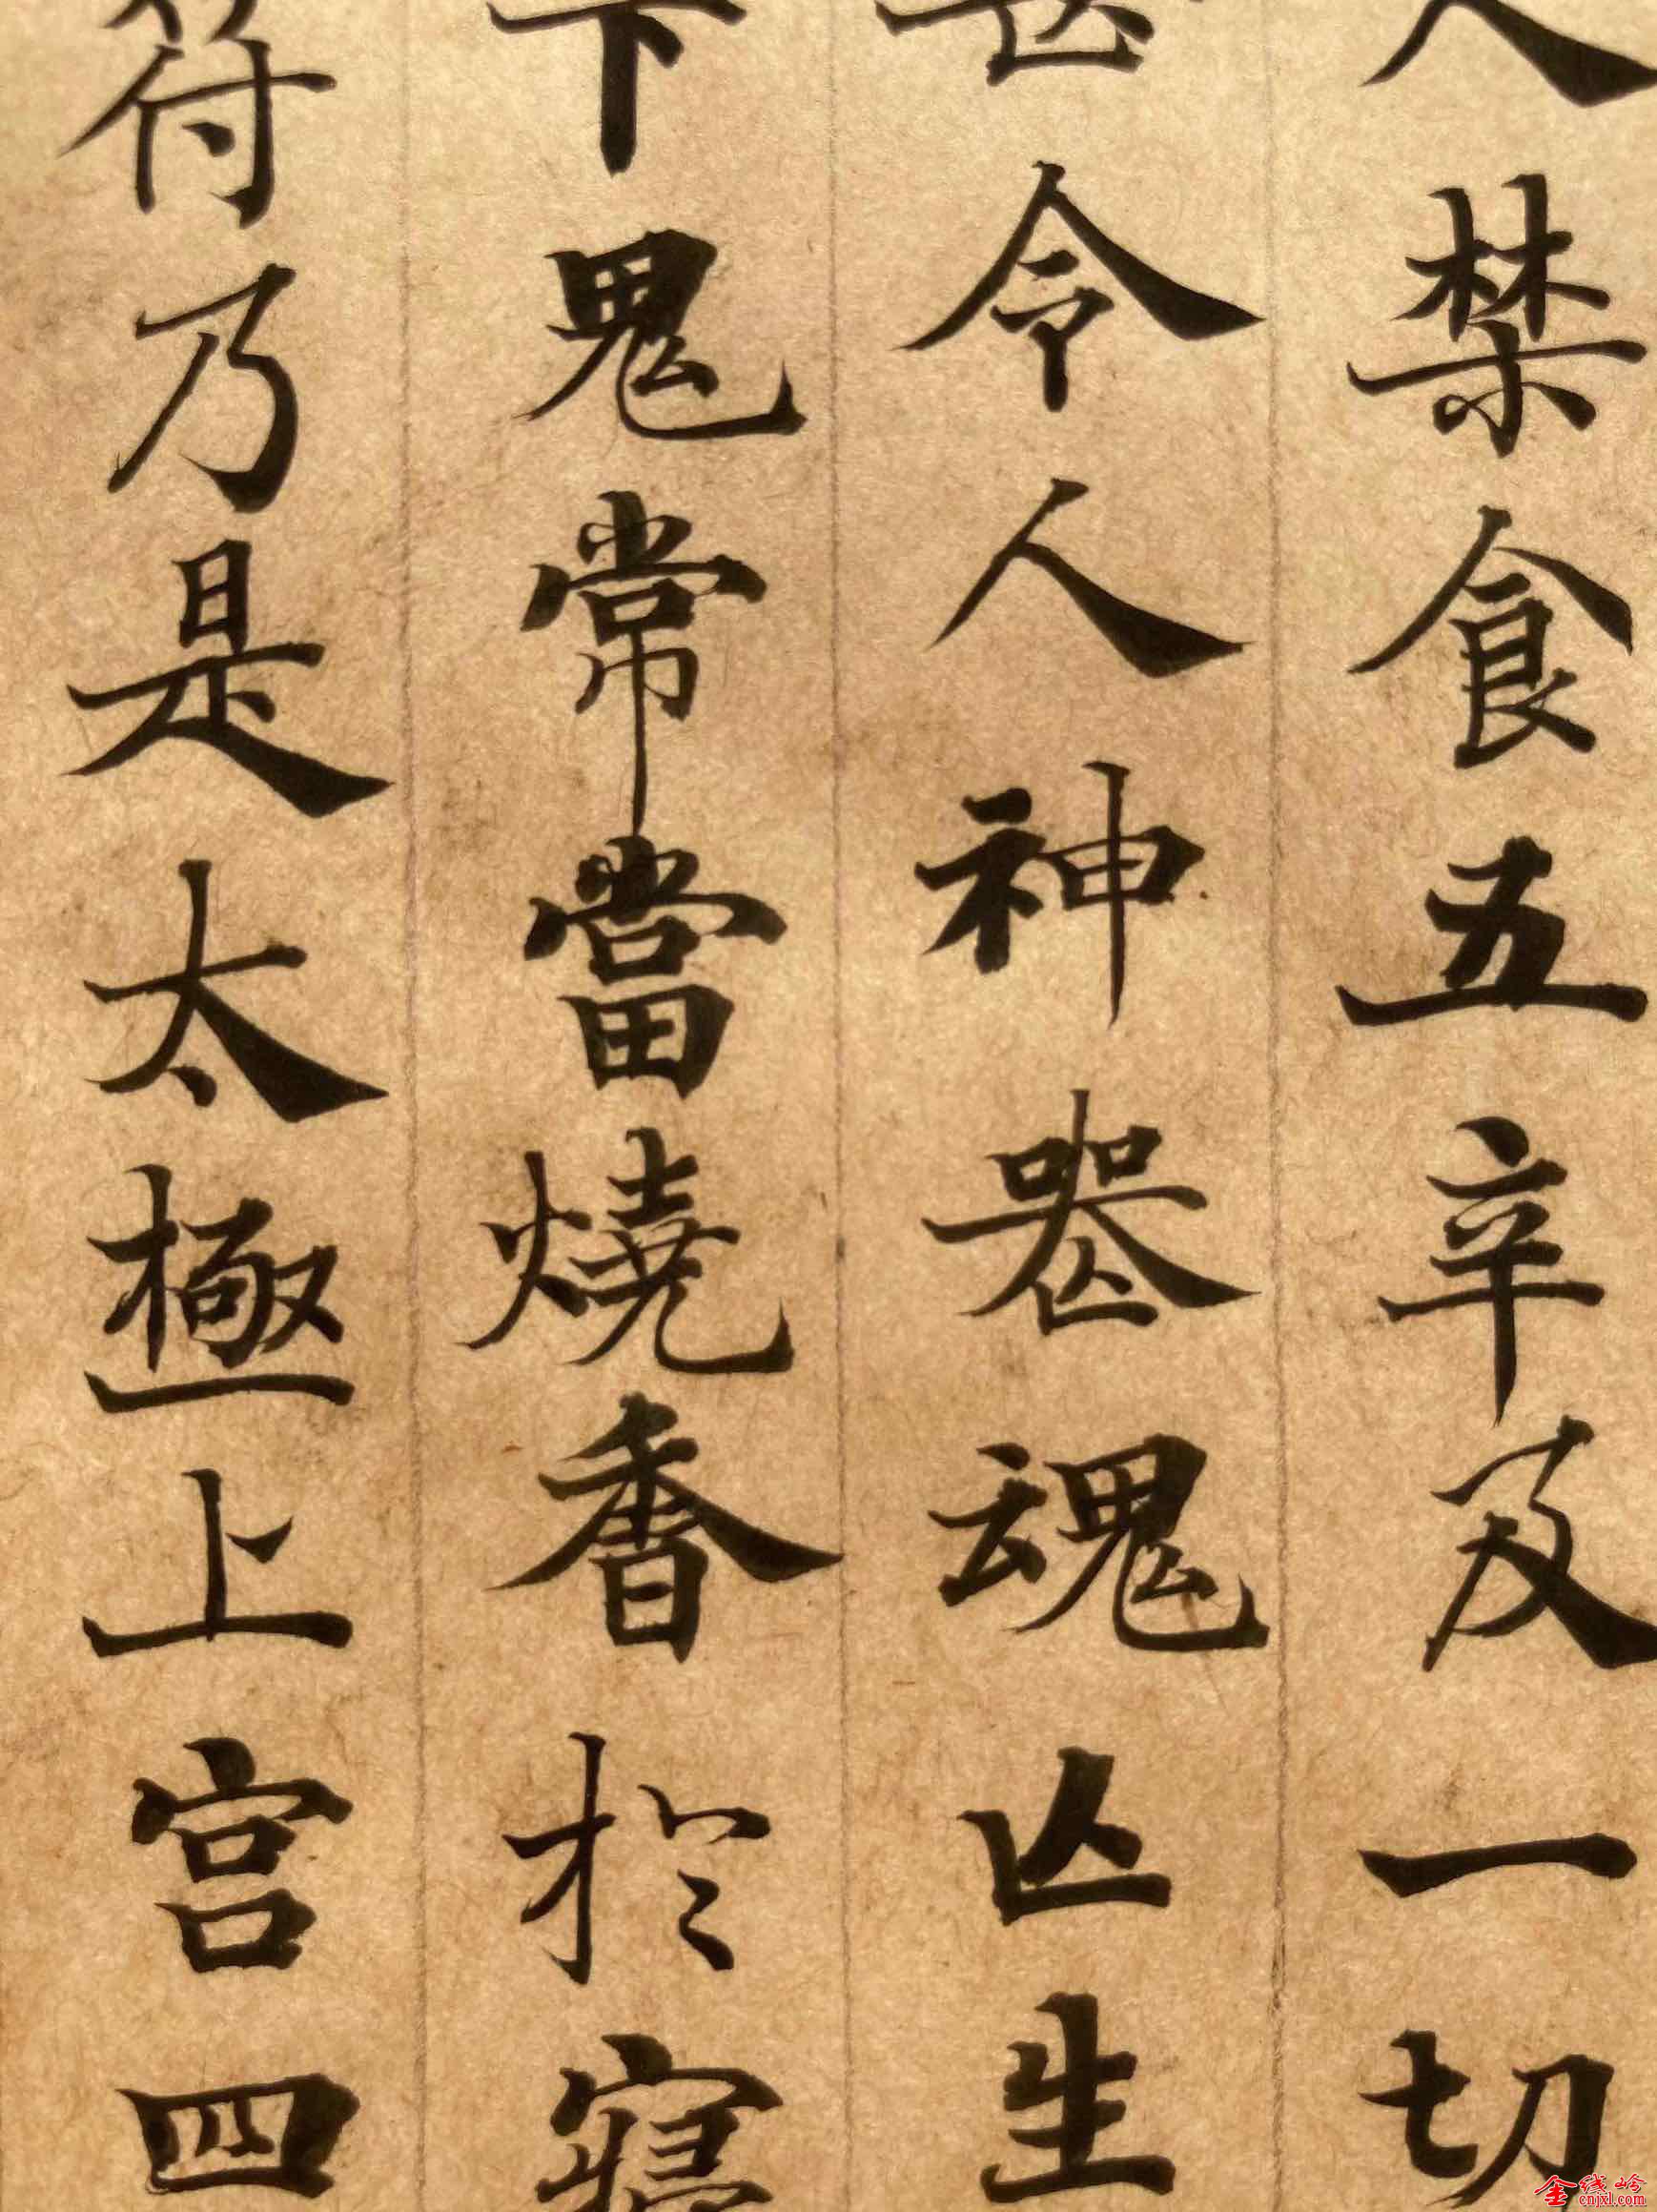 人禁食五辛及一切
甚令人神喪魂亡生
下鬼常當燒香於寢
符乃是太極上宫四
金线岭
cnjxl.com